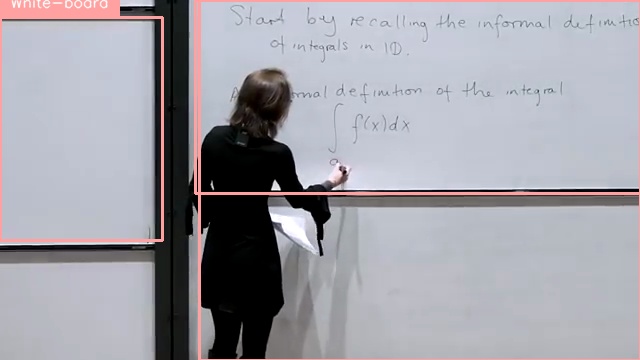 White-board
Start by recalling the informal definitio
of integrals in 1D.
A ormal definition of the integral
∫ f(x)dx
a